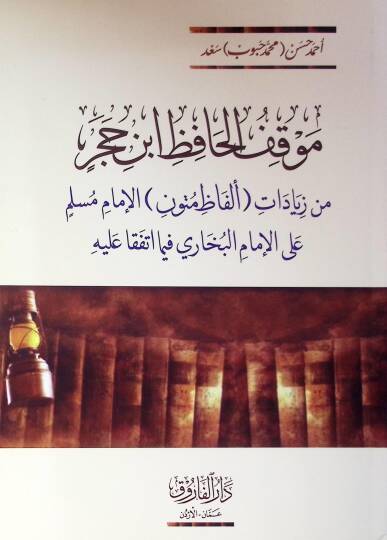 أحمد حسن (محمد حبوب) سعد
مَوْقِفُ الحَافِظِ ابنِ حَجَرٍ
من زِيَادَاتِ (ألفَاظِ مُتونِ) الإمَامِ مُسلمٍ
عَلى الإمَامِ البُخَاري فيمَا اتفَقَا عَليهِ
دَارُ الفَارُوق
عمَّان - الأردن